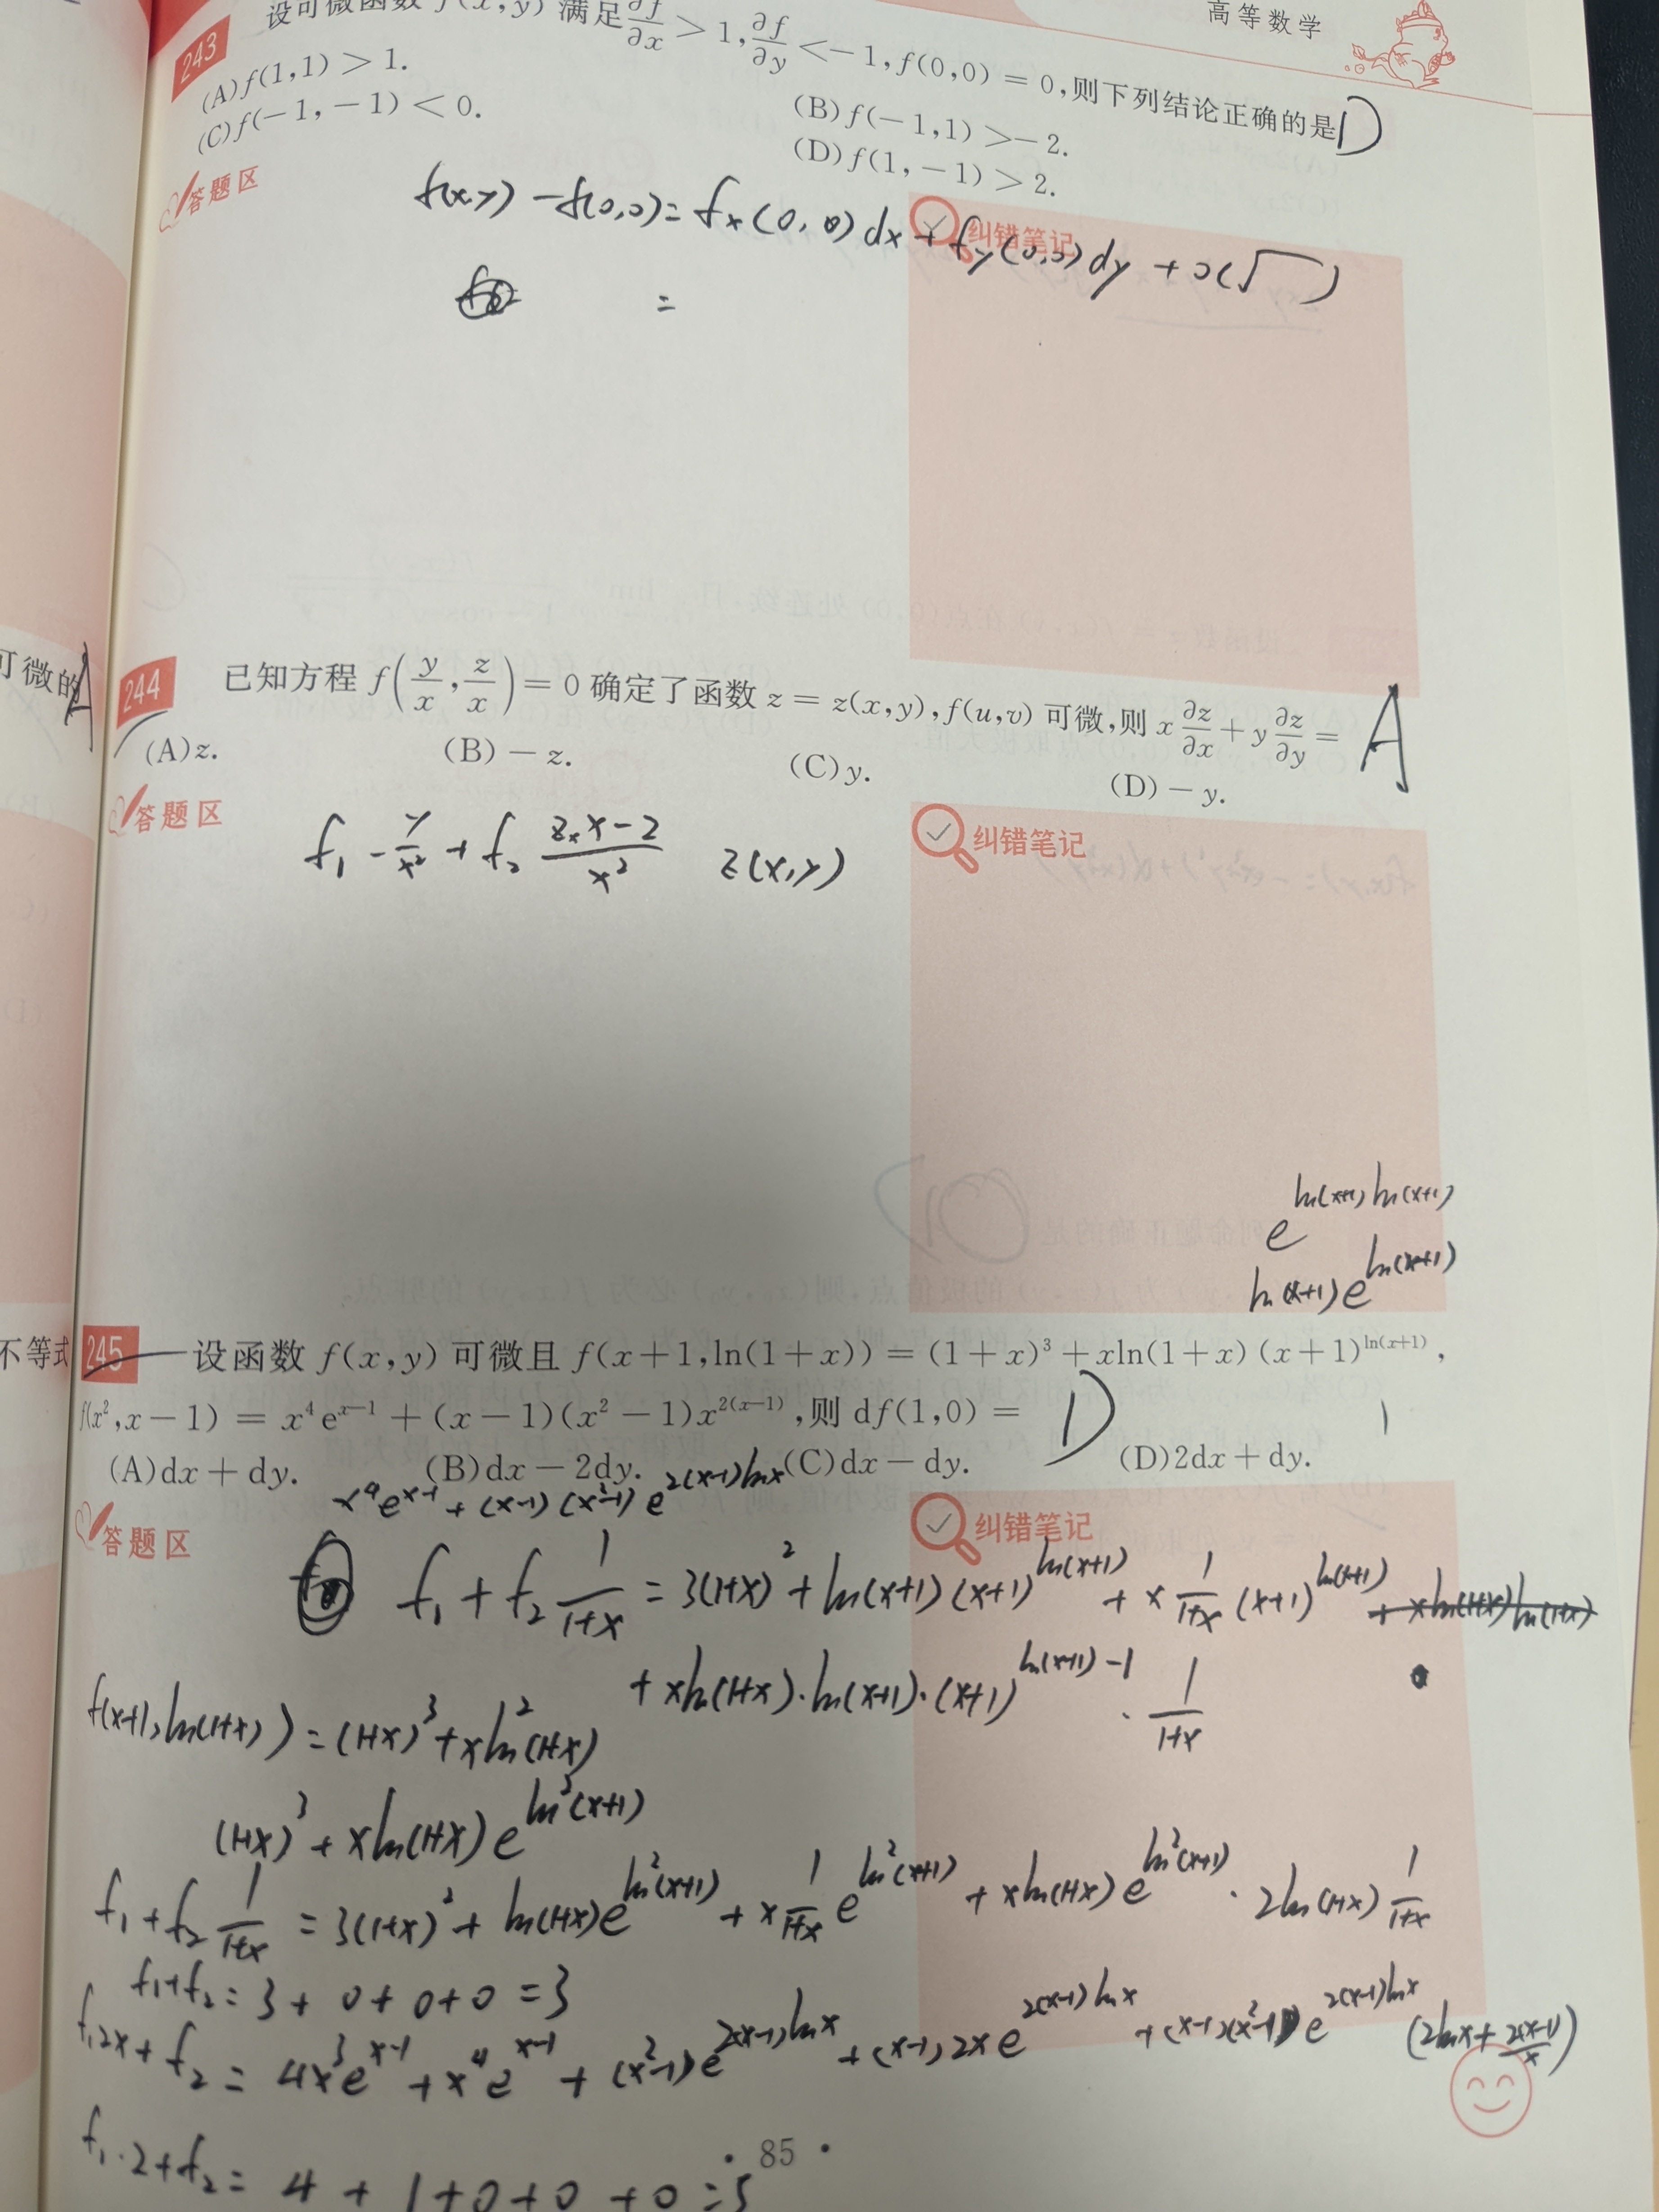 高等数学
243 设可微函数 f(x,y) 满足 ∂f/∂x > 1, ∂f/∂y < -1, f(0,0) = 0, 则下列结论正确的是 D
(A) f(1,1) > 1.
(B) f(-1,1) > -2.
(C) f(-1,-1) < 0.
(D) f(1,-1) > 2.
答题区
纠错笔记
f(x,y) - f(0,0) = fx(0,0)dx + fy(0,0)dy + o(√ )
=
可微的 A
244 已知方程 f(y/x, z/x) = 0 确定了函数 z = z(x,y), f(u,v) 可微, 则 x ∂z/∂x + y ∂z/∂y = A
(A) z.
(B) - z.
(C) y.
(D) - y.
答题区
纠错笔记
f₁ -y/x² + f₂ (zₓx-z)/x² z(x,y)
e^(ln(x+1)ln(x+1))
ln(x+1)e^(ln(x+1))
不等式
245 设函数 f(x,y) 可微且 f(x+1,ln(1+x)) = (1+x)³ + xln(1+x)(x+1)^(ln(x+1)),
f(x²,x-1) = x⁴e^(x-1) + (x-1)(x²-1)x^(2(x-1)), 则 df(1,0) = D
(A) dx + dy.
(B) dx - 2dy.
(C) dx - dy.
(D) 2dx + dy.
x⁴e^(x-1) + (x-1)(x²-1)e^(2(x-1)lnx)
答题区
纠错笔记
f₁ + f₂ 1/(1+x) = 3(1+x)² + ln(x+1)(x+1)^(ln(x+1)) + x 1/(1+x) (x+1)^(ln(x+1))
+ xln(1+x)·ln(x+1)·(x+1)^(ln(x+1)-1) · 1/(1+x)
f(x+1,ln(1+x)) = (1+x)³ + xln²(1+x)
(1+x)³ + xln(1+x)e^(ln²(x+1))
f₁ + f₂ 1/(1+x) = 3(1+x)² + ln(1+x)e^(ln²(x+1)) + x 1/(1+x) e^(ln²(x+1)) + xln(1+x)e^(ln²(x+1)) · 2ln(1+x) 1/(1+x)
f₁+f₂ = 3 + 0 + 0 + 0 = 3
f₁2x + f₂ = 4x³e^(x-1) + x⁴e^(x-1) + (x²-1)e^(2(x-1)lnx) + (x-1)2xe^(2(x-1)lnx) + (x-1)(x²-1)e^(2(x-1)lnx) (2lnx + 2(x-1)/x)
f₁·2+f₂ = 4 + 1+0+0 +0 =5
· 85 ·